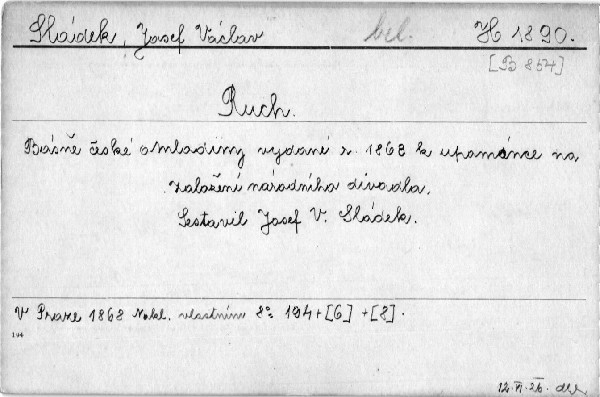 Sládek, Josef Václav bel. H 1890.
[B 854]
Ruch.
Básně české omladiny vydané r. 1868 k upomínce na
založení národního divadla.
Sestavil Josef V. Sládek.
V Praze 1868 Nakl. vlastním 8º. 194+[6]+[8].
104
12.VI.26.